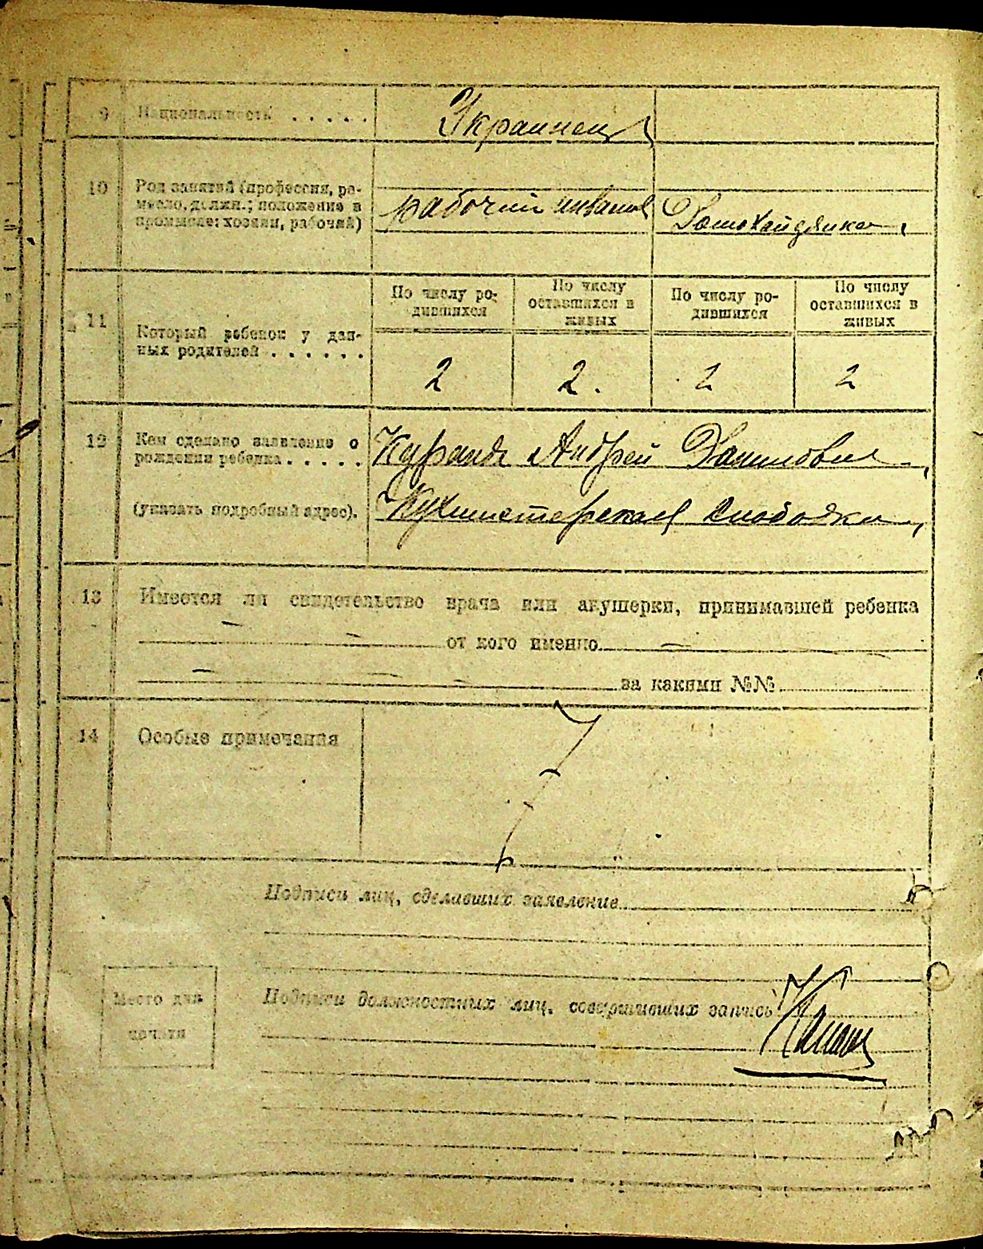 9 Национальность . . . . . Украинец
10 Род занятий (профессия, ре-
месло, должн.; положение в
промысле: хозяин, рабочий)
рабочий инвалид Домохайдянка
11 Который ребенок у дан-
ных родителей . . . . . .
По числу ро-
дившихся
По числу
оставшихся в
живых
По числу ро-
дившихся
По числу
оставшихся в
живых
2 2. 2 2
12 Кем сделано заявление о
рождении ребенка . . . . .
Андрей Данилович
(указать подробный адрес).
Кухмистерская слободка
13 Имеется ли свидетельство врача или акушерки, принимавшей ребенка
от кого именно
за какими №№
14 Особые примечания
Подписи лиц, сделавших заявление
Место для
печати
Подписи должностных лиц, совершивших запись